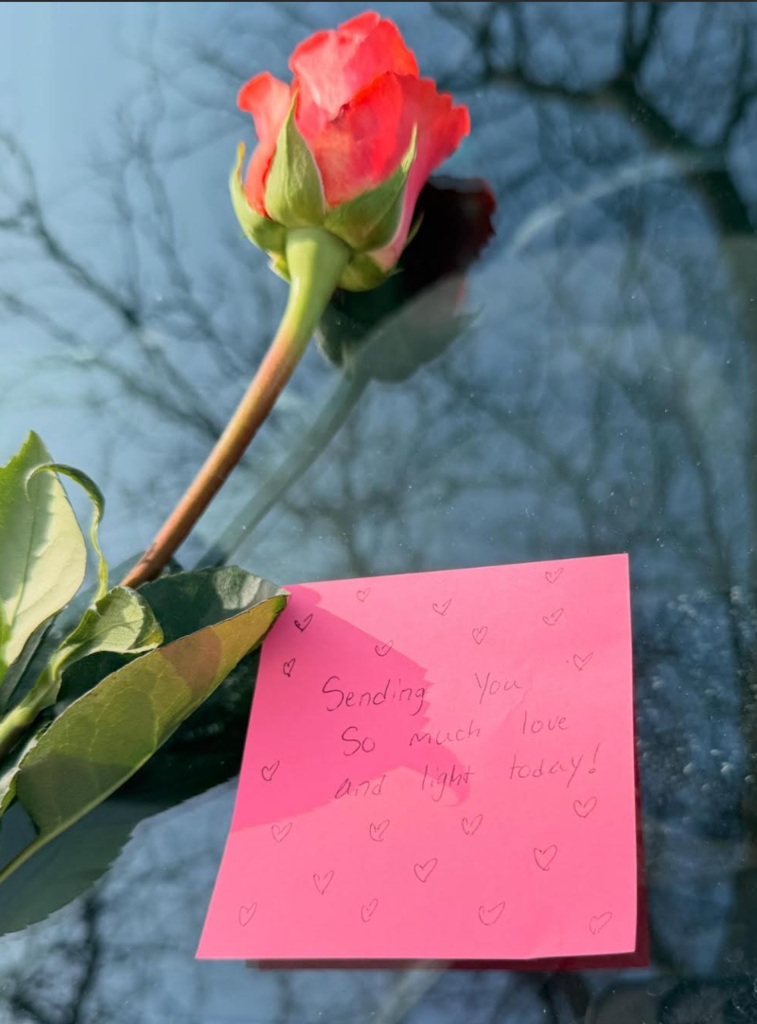 Sending You
So much love
and light today!